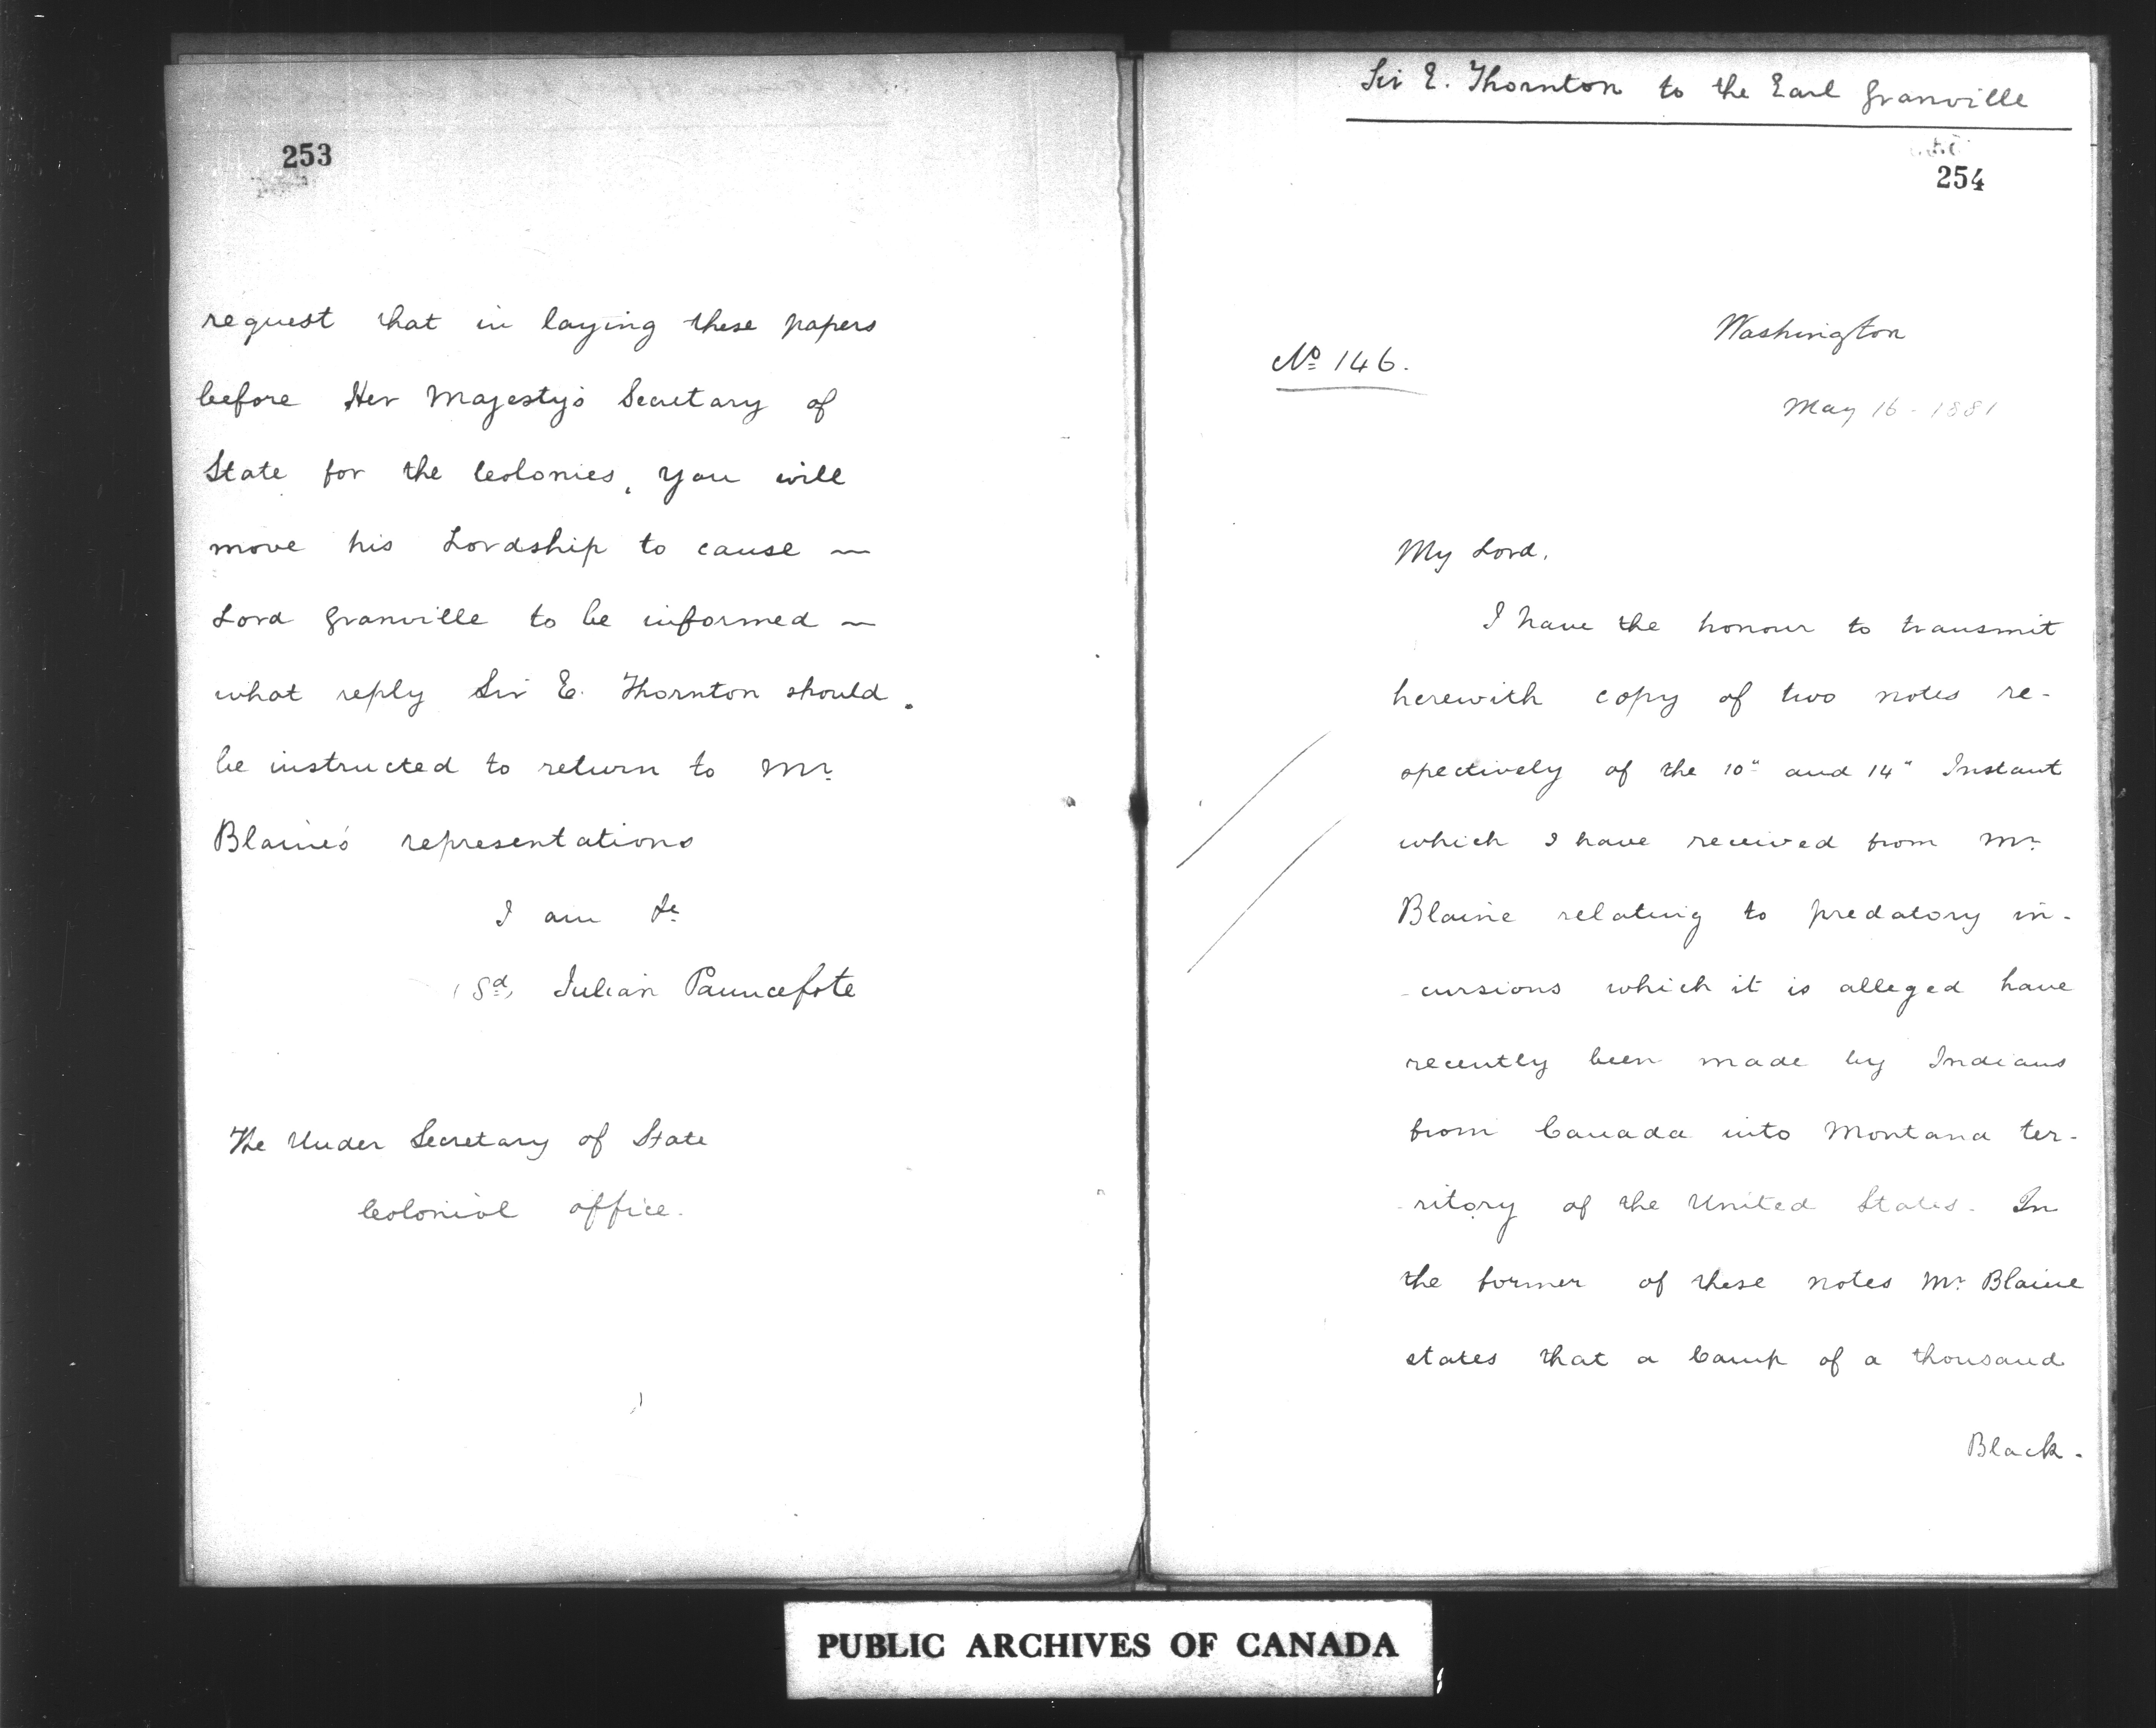 253
request that in laying these papers
before Her Majesty's Secretary of
State for the Colonies, you will
move his Lordship to cause —
Lord Granville to be informed —
what reply Sir E. Thornton should.
be instructed to return to Mr
Blaine's representations
I am &c
(Sd) Julian Pauncefote
The Under Secretary of State
Colonial Office.
Sir E. Thornton to the Earl Granville
254
Washington
No 146.
May 16 - 1881
My Lord,
I have the honour to transmit
herewith copy of two notes re-
spectively of the 10" and 14" Instant
which I have received from Mr
Blaine relating to predatory in-
-cursions which it is alleged have
recently been made by Indians
from Canada into Montana ter-
-ritory of the United States. In
the former of these notes Mr Blaine
states that a Camp of a thousand
Black -
PUBLIC ARCHIVES OF CANADA